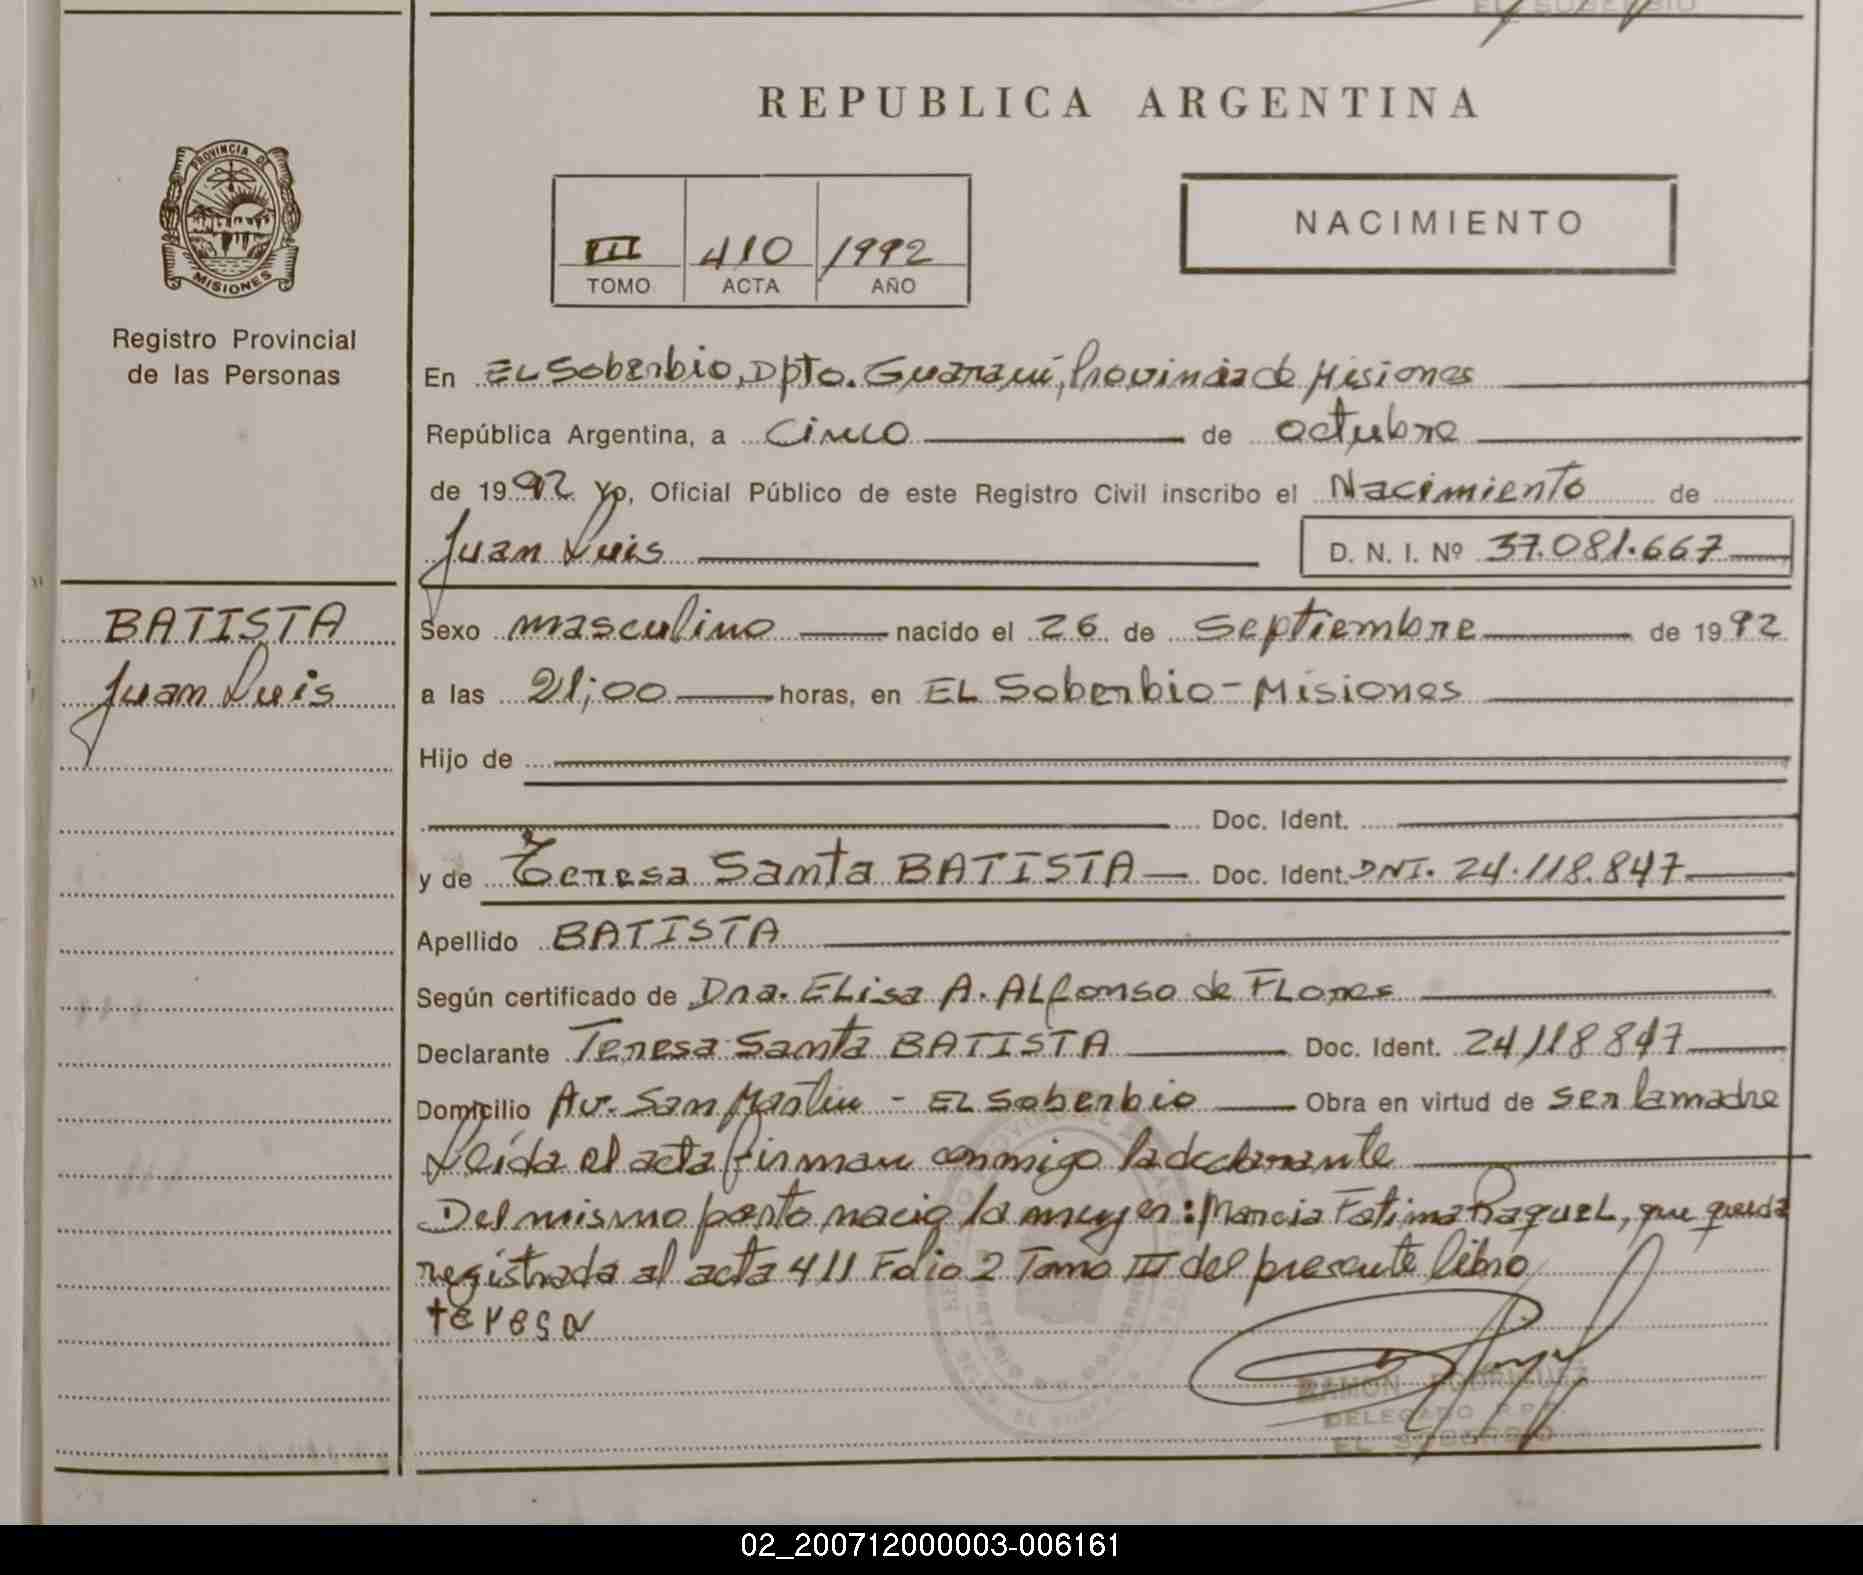 EL SOBERBIO
REPUBLICA ARGENTINA
PROVINCIA DE
MISIONES
Registro Provincial
de las Personas
III 410 1992
TOMO ACTA AÑO
NACIMIENTO
En EL Soberbio, Dpto. Guaraní, Provincia de Misiones
República Argentina, a Cinco de octubre
de 1992 Yo, Oficial Público de este Registro Civil inscribo el Nacimiento de
Juan Luis D. N. I. Nº 37.081.667
BATISTA
Juan Luis
Sexo masculino nacido el 26 de Septiembre de 1992
a las 21;00 horas, en EL Soberbio - Misiones
Hijo de
Doc. Ident.
y de Teresa Santa BATISTA Doc. Ident. DNI. 24.118.847
Apellido BATISTA
Según certificado de Dra. ELisa A. ALfonso de FLores
Declarante Teresa Santa BATISTA Doc. Ident. 24118847
Domicilio Av. San Martin - EL Soberbio Obra en virtud de ser la madre
Leída el acta firman conmigo la declarante
Del mismo parto nacio la mujer: Marcia Fatima Raquel, que queda
registrada al acta 411 Folio 2 Tomo III del presente libro
teresa
RAMON RODRIGUEZ
DELEGADO R.P.P.
EL SOBERBIO
02_200712000003-006161